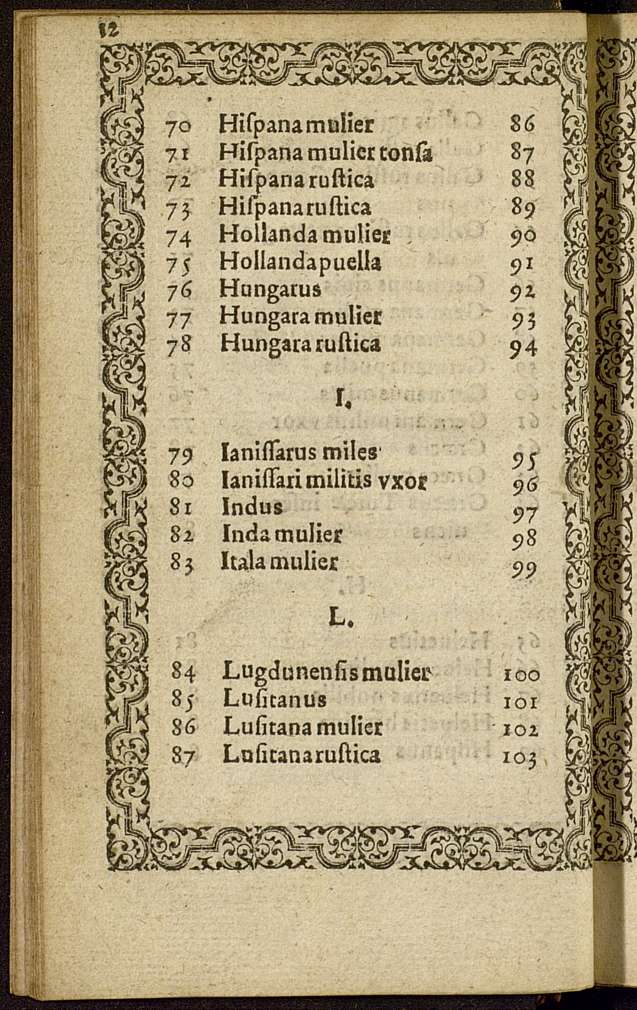 12
70 Hiſpana mulier 86
71 Hiſpana mulier tonſa 87
72 Hiſpana ruſtica 88
73 Hiſpana ruſtica 89
74 Hollanda mulier 90
75 Hollanda puella 91
76 Hungarus 92
77 Hungara mulier 93
78 Hungara ruſtica 94
I.
79 Ianiſſarus miles 95
80 Ianiſſari militis vxor 96
81 Indus 97
82 Inda mulier 98
83 Itala mulier 99
L.
84 Lugdunenſis mulier 100
85 Luſitanus 101
86 Luſitana mulier 102
87 Luſitana ruſtica 103